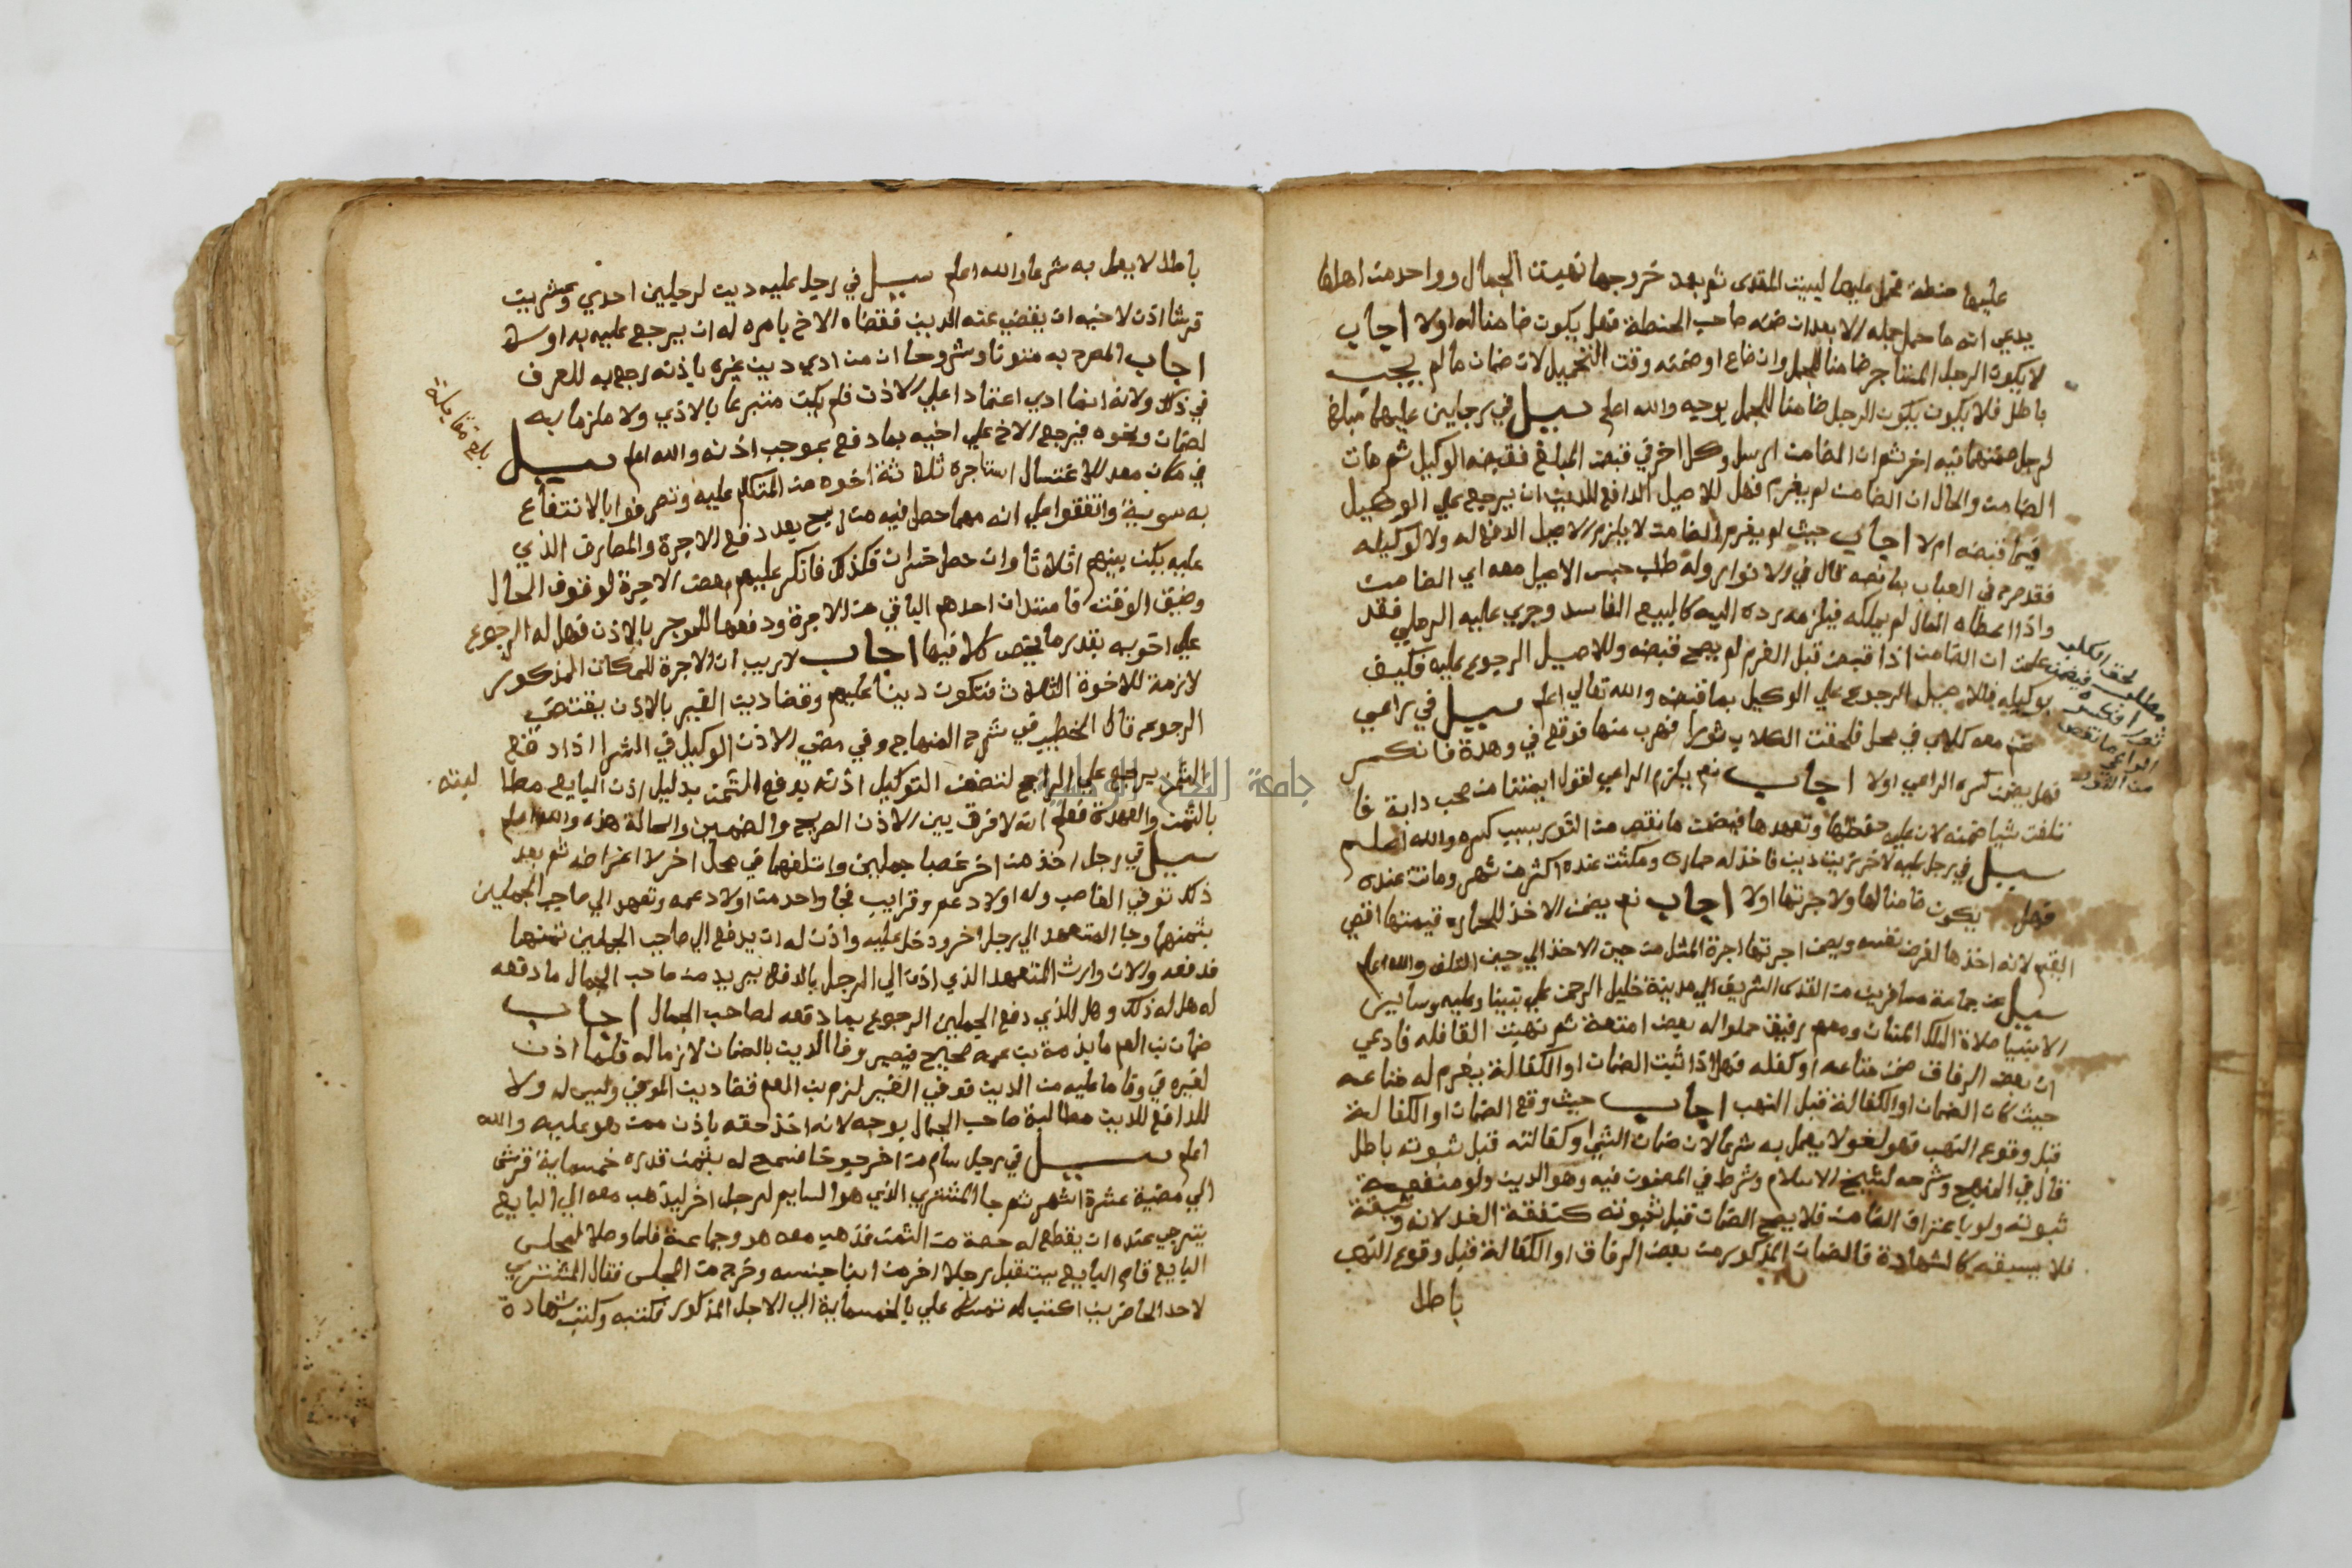 عليها حنطة تحمل عليها لبيت المقدس ثم بعد خروجها نهبت الجمال وواحد من اهلها
يدعي انه ما حمل جمله الا بعد ان ضمنه صاحب الحنطة فهل يكون ضامنا له اولا اجاب
لا يكون الرجل المستاجر ضامنا للجمل وان ضاع او ضمنه وقت التحميل لان ضمان ما لم يجب
باطل فلا يكون يكون الرجل ضامنا للجمل بوجه والله اعلم سيل في رجلين عليهما مبلغ
لرجل ضمنهما فيه اخر ثم ان الضامن ارسل وكل اخر في قبض المبلغ فقبضه الوكيل ثم مات
الضامن والحال ان الضامن لم يغرم فهل للاصيل الدافع للدين ان يرجع على الوكيل
فيما قبضه ام لا اجاب حيث لم يغرم الضامن لا يلزم الاصيل الدفع له ولا لوكيله
فقد صرح في العباب بما نصه قال في الانوار وله طلب حبس الاصيل معه اي الضامن
واذا اعطاه المال لم يملكه فيلزمه رده اليه كالبيع الفاسد وجري عليه الرملي فقد
علمت ان الضامن اذا قبض قبل الغرم لم يصح قبضه وللاصيل الرجوع عليه فكيف
بوكيله فللاصيل الرجوع علي الوكيل بما قبضه والله تعالي اعلم سيل في راعي
غنم معه كلاب في محل فلحقت الكلاب ثورا فهرب منها فوقع في وهدة فانكسر
فهل يضمن كسره الراعي اولا اجاب نعم يلزم الراعي لقول ايمتنا من صحب دابة فا
تلفت شيا ضمنه لان عليه حفظها وتعهدها فيضمن ما نقص من الثور بسبب كسره والله اعلم
سيل في رجل عليه لاخر زيت دين فاخذ له حماره ومكثت عنده اكثر من شهر وماتت عنده
فهل يكون ضامنا لها ولاجرتها اولا اجاب نعم يضمن الاخذ للحماره قيمتها اقصي
القيم لانه اخذها لغرض نفسه ويضمن اجرتها اجرة المثل من حين الاخذ الي حين التلف والله اعلم
سيل عن جماعة مسافرين من القدس الشريف الي مدينة خليل الرحمن علي نبينا وعليه وساير
الانبيا صلاة الملك المنان ومعهم رفيق حملوا له بعض امتعة ثم نهبت القافله فادعي
ان بعض الرفاق ضمن متاعه او كفله فهل اذا ثبت الضمان او الكفالة يغرم له متاعه
حيث كان الضمان او الكفالة قبل النهب اجاب حيث وقع الضمان او الكفالة
قبل وقوع النهب فهو لغو لا يعمل به شرعا لان ضمان الشي او كفالته قبل ثبوته باطل
قال في المنهج وشرحه لشيخ الاسلام وشرط في المضمون فيه وهو الدين ولو منفعة
ثبوته ولو باعتراف الضامن فلا يصح الضمان قبل ثبوته كنفقة الغد لانه وثيقة
فلا يسبقه كالشهادة فالضمان المذكور من بعض الرفاق او الكفالة قبل وقوع النهب
باطل
مطلب لحقت الكلاب
ثورا فانكسر فيضمن
الراعي ما نقص
من الثور
باطل لا يعمل به شرعا والله اعلم سيل في رجل عليه دين لرجلين احدي وعشرين
قرشا اذن لاخيه ان يقضي عنه الدين فقضاه الاخ بامره له ان يرجع عليه بدا وسه
اجاب المصرح به متونا وشروحا ان من ادي دين غيره باذنه رجع به للعرف
في ذلك ولانه انما ادي اعتمادا علي الاذن فلم يكن متبرعا بالادي ولا ملزما به
لضمان ونحوه فيرجع الاخ علي اخيه بما دفع بموجب اذنه والله اعلم سيل
في مكان معد للاغتسال استاجره ثلاثة اخوه من المتكلم عليه وتصرفوا بالانتفاع
به سوية واتفقوا علي انه مهما حصل فيه من ربح بعد دفع الاجرة والمصارف الذي
عليه يكن بينهم اثلاثا وان حصل خسران فكذلك فانكسر عليهم بعض الاجرة لوقوف الحال
وضيق الوقت فاستدان احدهم الباقي من الاجرة ودفعها للموجر بالاذن فهل له الرجوع
علي اخويه بقدر ما يخص كلا فيها اجاب لا ريب ان الاجرة للمكان المذكور
لازمة للاخوة الثلاث فتكون دينا عليهم وقضا دين الغير بالاذن يقتضي
الرجوع قال الخطيب في شرح المنهاج وفي مضي الاذن الوكيل في الشرا اذا دفع
الثمن يرجع علي الراجح لتضمن التوكيل اذنه بدفع الثمن بدليل اذن البايع مطا لبته
بالثمن والعهدة فعلم انه لا فرق بين الاذن الصريح والضمين والحالة هذه والله اعلم
سيل في رجل اخذ من اخر غصبا جملين واتلفهما في محل اخر لاغراضه ثم بعد
ذلك توفي الغاصب وله اولاد عم وقرايب فجا واحد من اولاد عمه وتعهد الي صاحب الجملين
بثمنهما وجا المتعهد الي رجل اخر ودخل عليه واذن له ان يدفع الي صاحب الجملين ثمنهما
فدفعه والان وارث المتعهد الذي اذن الي الرجل بالدفع يريد من صاحب الجمال ما دفعه
له هل له ذلك وهل للذي دفع الجملين الرجوع بما دفعه لصاحب الجمال اجاب
ضمان بن العم ما بذمة بن عمه صحيح فيصير وفا الدين بالضمان لازما له فلما اذن
لغيره في وفا ما عليه من الدين فوفي الغير لزم بن العم قضا دين الموفي وليس له ولا
للدافع للدين مطالبة صاحب الجمال بوجه لانه اخذ حقه باذن ممن هو عليه والله
اعلم سيل في رجل سام من اخر جوخا فسمح له بثمن قدره خمسماية قرش
الي مضية عشرة اشهر ثم جا المشتري الذي هو السايم لرجل اخر ليذهب معه الي البايع
يترجي عنده ان يقطع له حصة من الثمن فذهب معه هو وجماعة فلما وصلا لمجلس
البايع قام البايع يستقبل رجلا اخر من ابنا جنسه وخرج من المجلس فقال المشتري
لاحد الحاضرين اكتب له تمسك علي بالخمسماية الي الاجل المذكور فكتبه وكتب شهادة
بلغ مقابلة